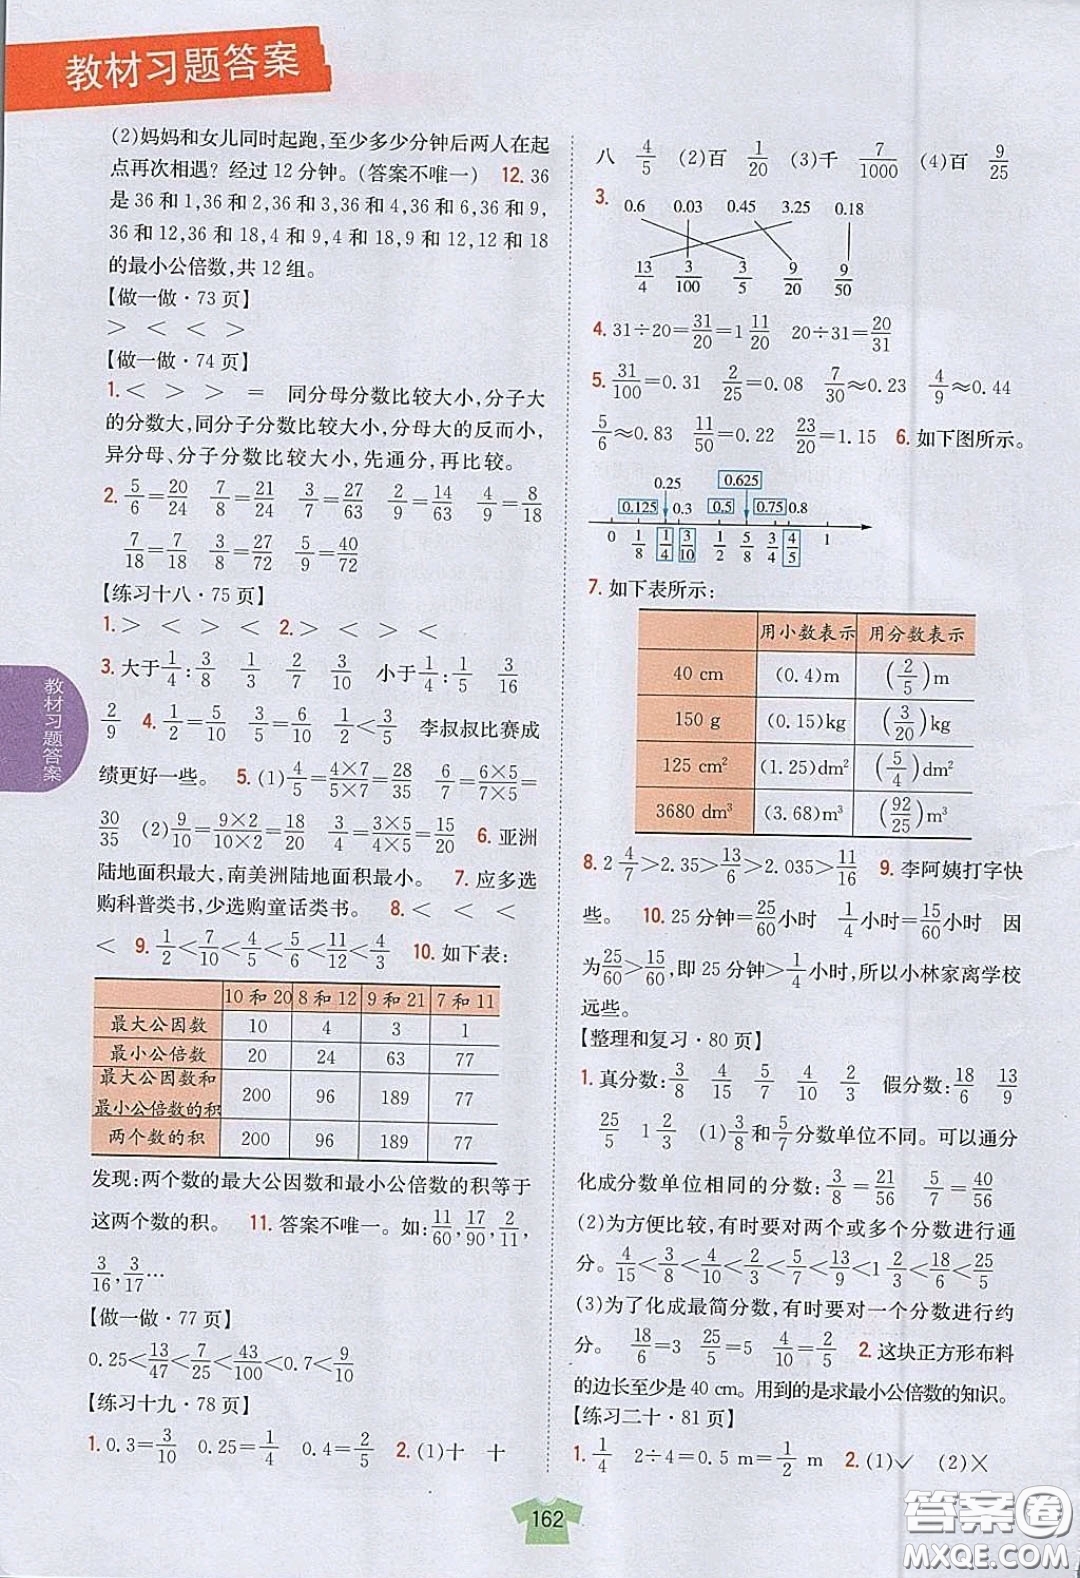 教材习题答案
(2)妈妈和女儿同时起跑,至少多少分钟后两人在起
点再次相遇? 经过 12 分钟。(答案不唯一) 12. 36
是 36 和 1,36 和 2,36 和 3,36 和 4,36 和 6,36 和 9,
36 和 12,36 和 18,4 和 9,4 和 18,9 和 12,12 和 18
的最小公倍数,共 12 组。
【做一做·73 页】
> < < >
【做一做·74 页】
1. < > > = 同分母分数比较大小,分子大
的分数大,同分子分数比较大小,分母大的反而小,
异分母、分子分数比较大小,先通分,再比较。
2. 5/6=20/24 7/8=21/24 3/7=27/63 2/9=14/63 4/9=8/18
7/18=7/18 3/8=27/72 5/9=40/72
【练习十八·75 页】
1. > < > < 2. > < > <
3. 大于1/4:3/8 1/3 2/7 3/10 小于1/4:1/5 3/16
2/9 4. 1/2=5/10 3/5=6/10 1/2<3/5 李叔叔比赛成
绩更好一些。 5. (1)4/5=4×7/5×7=28/35 6/7=6×5/7×5=
30/35 (2)9/10=9×2/10×2=18/20 3/4=3×5/4×5=15/20 6. 亚洲
陆地面积最大,南美洲陆地面积最小。 7. 应多选
购科普类书,少选购童话类书。 8. < < <
< 9. 1/2<7/10<4/5<5/6<11/12<4/3 10. 如下表:
10 和 20 8 和 12 9 和 21 7 和 11
最大公因数 10 4 3 1
最小公倍数 20 24 63 77
最大公因数和
最小公倍数的积 200 96 189 77
两个数的积 200 96 189 77
发现:两个数的最大公因数和最小公倍数的积等于
这两个数的积。 11. 答案不唯一。如:11/60,17/90,2/11,
3/16,3/17…
【做一做·77 页】
0.25<13/47<7/25<43/100<0.7<9/10
【练习十九·78 页】
1. 0.3=3/10 0.25=1/4 0.4=2/5 2. (1)十 十
八 4/5 (2)百 1/20 (3)千 7/1000 (4)百 9/25
3. 0.6 0.03 0.45 3.25 0.18
13/4 3/100 3/5 9/20 9/50
4. 31÷20=31/20=1 11/20 20÷31=20/31
5. 31/100=0.31 2/25=0.08 7/30≈0.23 4/9≈0.44
5/6≈0.83 11/50=0.22 23/20=1.15 6. 如下图所示。
0.25 0.625
0.125 0.3 0.5 0.75 0.8
0 1/8 1/4 3/10 1/2 5/8 3/4 4/5 1
7. 如下表所示:
用小数表示 用分数表示
40 cm (0.4)m (2/5)m
150 g (0.15)kg (3/20)kg
125 cm² (1.25)dm² (5/4)dm²
3680 dm³ (3.68)m³ (92/25)m³
8. 2 4/7>2.35>13/6>2.035>11/16 9. 李阿姨打字快
些。 10. 25 分钟=25/60小时 1/4小时=15/60小时 因
为25/60>15/60,即 25 分钟>1/4小时,所以小林家离学校
远些。
【整理和复习·80 页】
1. 真分数:3/8 4/15 5/7 4/10 2/3 假分数:18/6 13/9
25/5 1 2/3 (1)3/8和5/7分数单位不同。可以通分
化成分数单位相同的分数:3/8=21/56 5/7=40/56
(2)为方便比较,有时要对两个或多个分数进行通
分。4/15<3/8<4/10<2/3<5/7<13/9<1 2/3<18/6<25/5
(3)为了化成最简分数,有时要对一个分数进行约
分。 18/6=3 25/5=5 4/10=2/5 2. 这块正方形布料
的边长至少是 40 cm。用到的是求最小公倍数的知识。
【练习二十·81 页】
1. 1/4 2÷4=0.5 m=1/2 m 2. (1)✓ (2)×
教材习题答案
162
答案圈
MXQE.COM